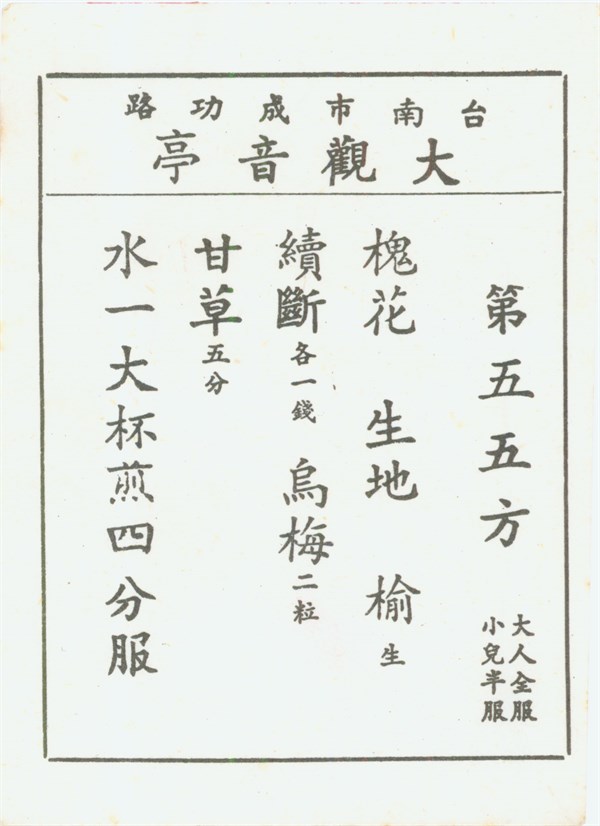 台南市成功路
大觀音亭
第五五方 大人全服
小兒半服
槐花 生地 榆生
續斷各一錢 烏梅二粒
甘草五分
水一大杯煎四分服